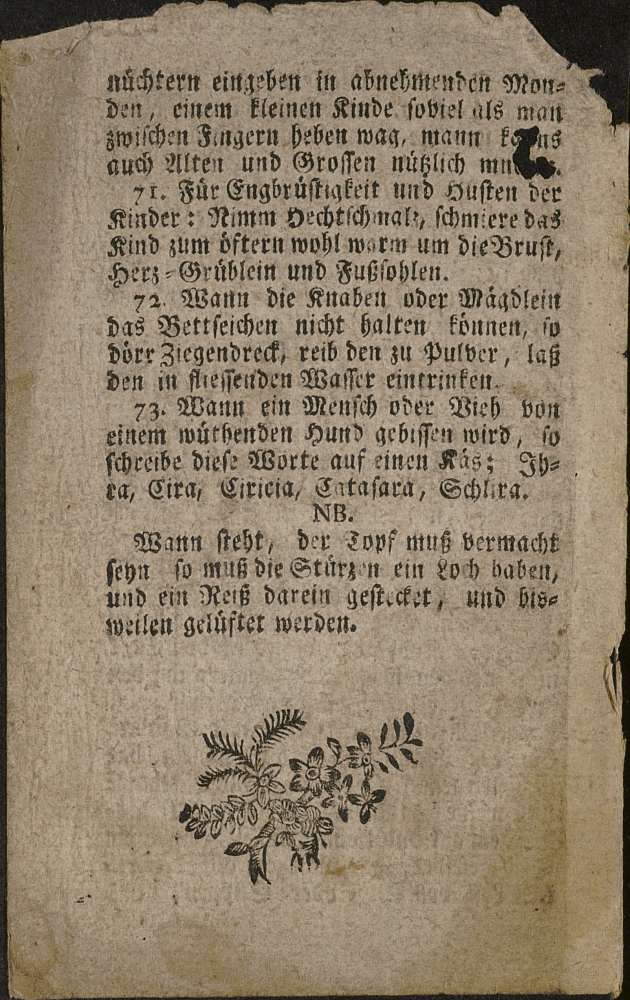 nüchtern eingeben in abnehmenden Mon-
den, einem kleinen Kinde soviel als man
zwischen Fingern heben mag, mann
auch Alten und Grossen nützlich
71. Für Engbrüstigkeit und Husten der
Kinder: Nimm Hechtschmalz, schmiere das
Kind zum öftern wohl warm um die Brust,
Herz-Grüblein und Fußsohlen.
72. Wann die Knaben oder Mägdlein
das Bettseichen nicht halten können, so
dörr Ziegendreck, reib den zu Pulver, laß
den in fliessenden Wasser eintrinken.
73. Wann ein Mensch oder Vieh von
einem wüthenden Hund gebissen wird, so
schreibe diese Worte auf einen Käs; Ih-
ra, Cira, Ciricia, Catasara,
NB.
Wann steht, der Topf muß vermacht
seyn so muß die Stürzen ein Loch haben,
und ein Reiß darein gestecket, und bis-
weilen gelüftet werden.